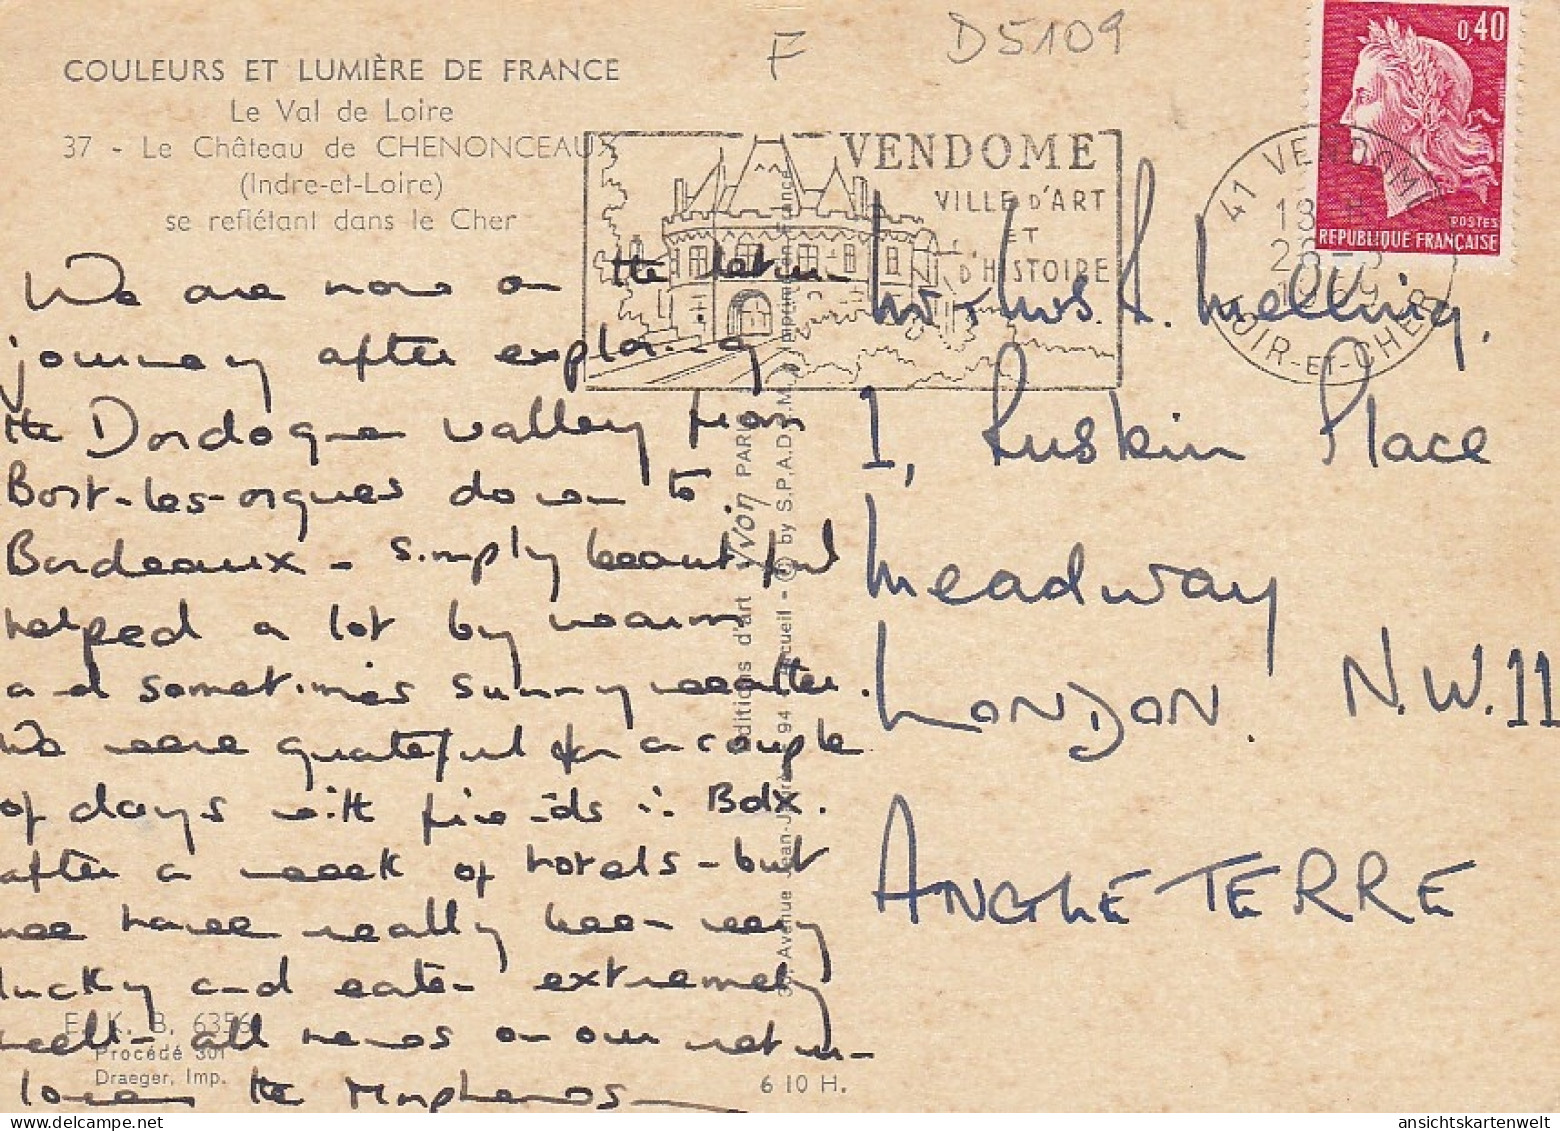 D5109
F
COULEURS ET LUMIÈRE DE FRANCE
Le Val de Loire
37 - Le Château de CHENONCEAUX
(Indre-et-Loire)
se reflétant dans le Cher
VENDOME
VILLE D'ART
ET
D'HISTOIRE
41 VENDOME
LOIR-ET-CHER
0,40
POSTES
REPUBLIQUE FRANÇAISE
We are now on the return
journey after exploring
the Dordogne valley from
Bort-les-orgues down to
Bordeaux - simply beautiful
helped a lot by warm
and sometimes sunny weather.
We were grateful for a couple
of days with friends in Bdx.
after a week of hotels - but
we have really been very
lucky and eaten extremely
well - all news on our return
love, the
Mr & Mrs. S. Melling.
1, Ruskin Place
Meadway
LONDON. N.W.11
ANGLETERRE
éditions d'art Yvon PARIS
Avenue Jean- 94 Arcueil - © by S.P.A.D.E.M. Imprimé en France
E. K. B. 6356
Procédé 301
Draeger, Imp.
6 10 H.
ansichtskartenwelt